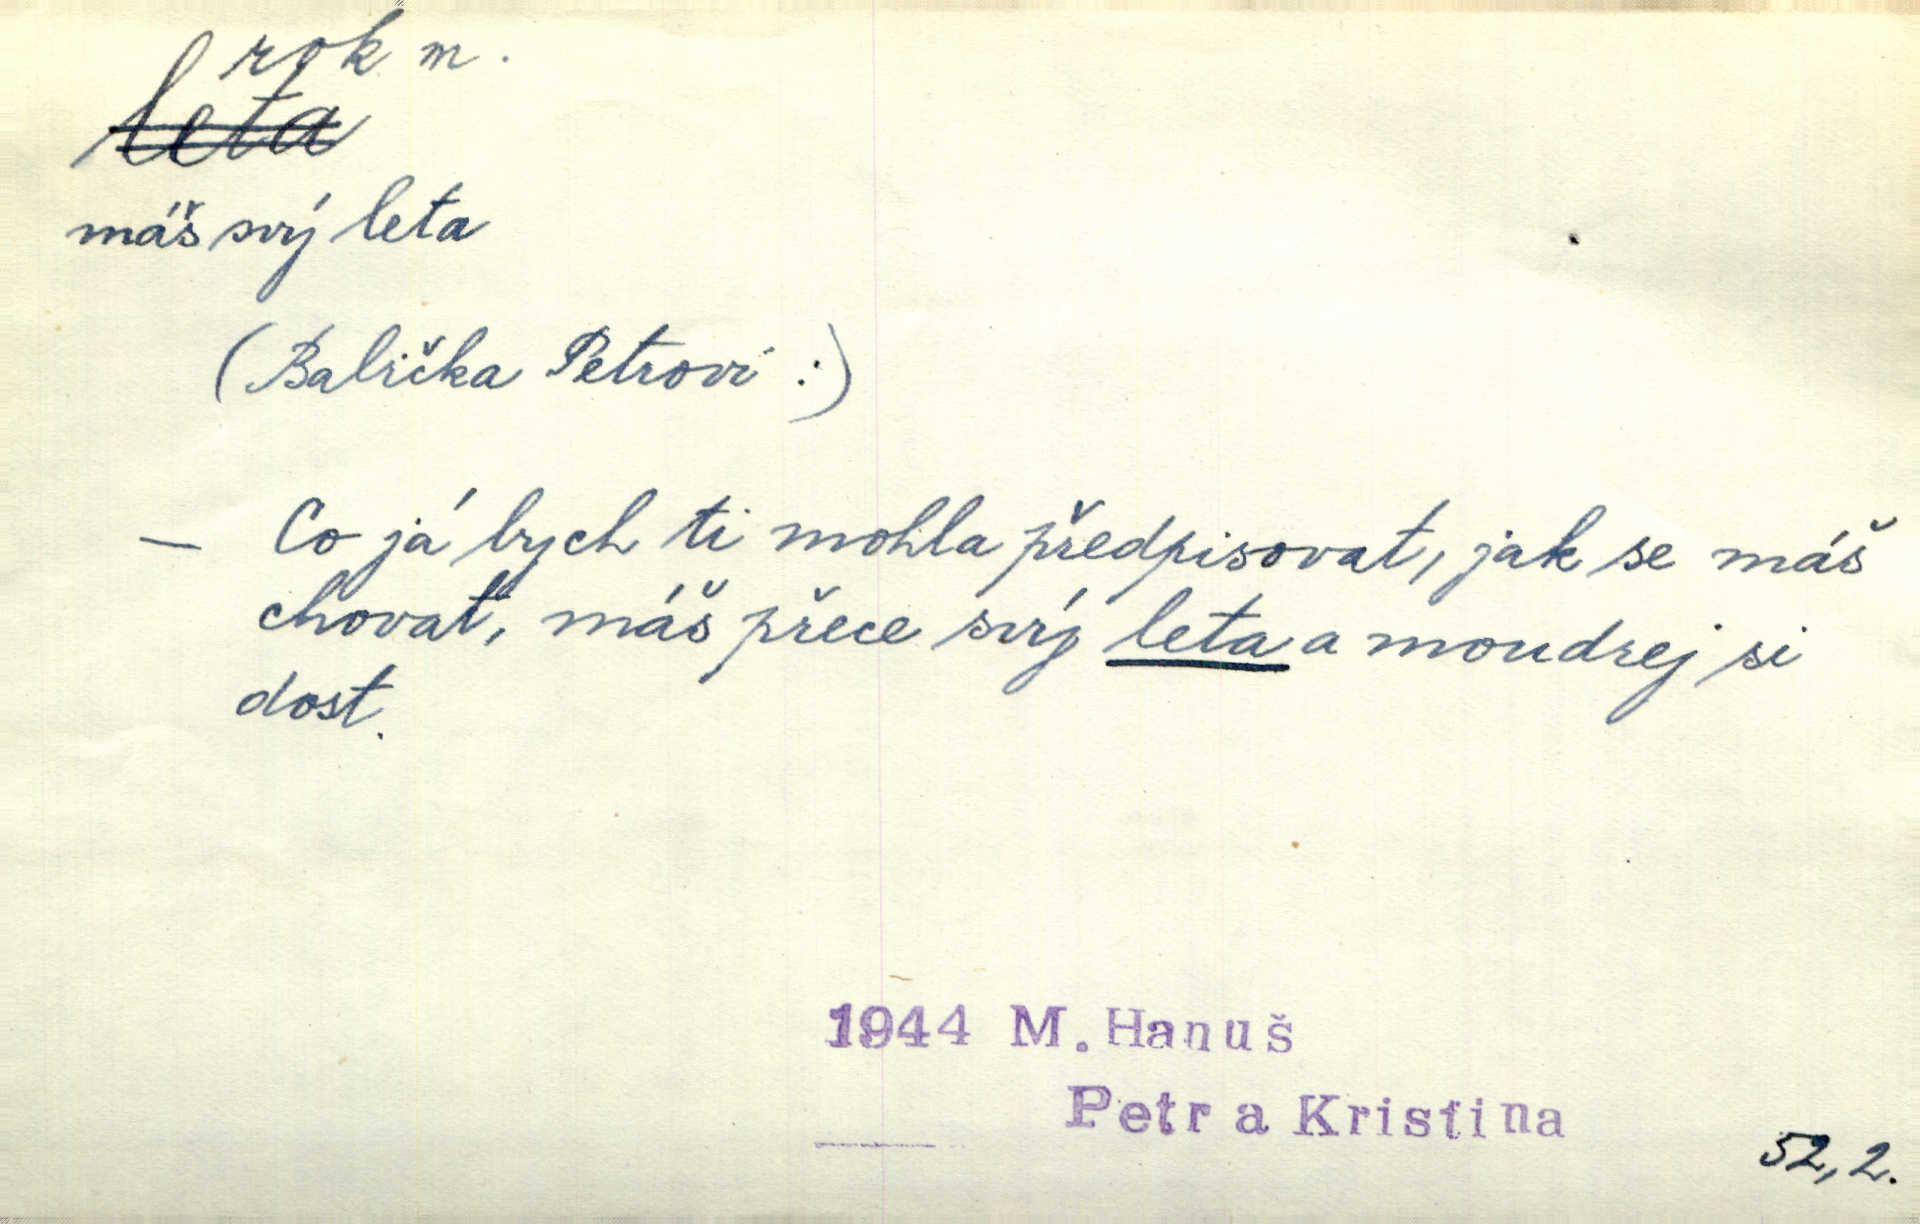 rok m.
leta
máš svý leta
(Babička Petrovi :)
— Co já bych ti mohla předpisovat, jak se máš
chovat, máš přece svý leta a moudrej si
dost.
1944 M. Hanuš
Petr a Kristina
52,2.